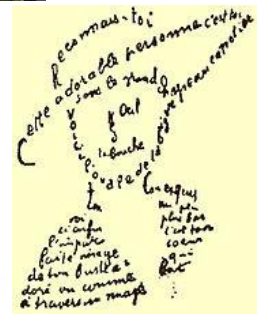 Reconnais-toi
Cette adorable personne c'est toi
Sous le grand
chapeau canotier
Œil
Nez
la bouche
Voici l'ovale de ta figure
Ton cou exquis
Voici enfin
l'imparfaite image
de ton buste a
doré vu comme
à travers un nuage
un peu
plus bas
c'est ton
coeur
qui
bat